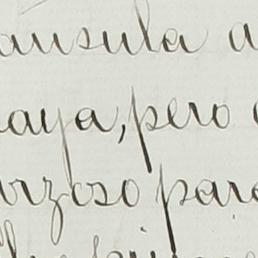 ausula a
aya, pero
rzoso para